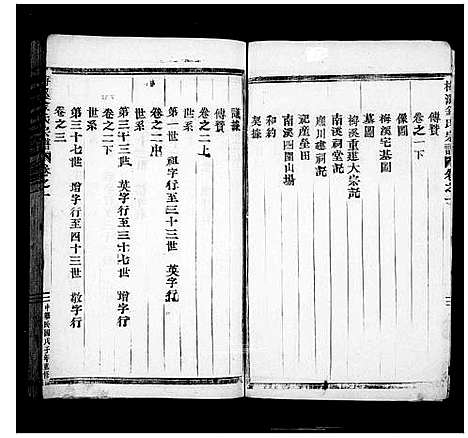 梅溪金氏宗譜
卷之一
傳贊
卷之一下
像圖
梅溪宅墓圖
梅溪重進大宗記
南溪祠堂記
應川建祠記
祀產塋田
南溪四圍山場
和約
契據
議據
卷之二上
世系
第一世 祖字行至三十三世 英字行
卷之二中
世系
第三十三世 英字行至三十七世 增字行
卷之二下
世系
第三十七世 增字行至四十三世 敬字行
卷之三
氏宗譜
卷之一
中華民國戊子年重修